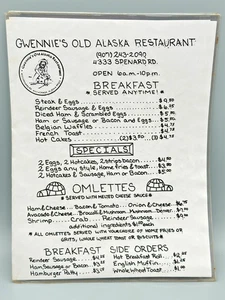 GWENNIE'S OLD ALASKA RESTAURANT
(907) 243-2090
4333 SPENARD RD.
OPEN 6a.m.-10p.m.
BREAKFAST
* SERVED ANYTIME! *
Steak & Eggs
Reindeer Sausage & Eggs
Diced Ham & Scrambled Eggs
Ham or Sausage or Bacon and Eggs
Belgian Waffles
French Toast
Hot Cakes (2) $3.50 (3)
SPECIALS
2 Eggs, 2 Hotcakes, 2 strips bacon
2 Eggs any style, home fries & toast
2 Hotcakes & Sausage, Ham or Bacon
OMLETTES
* SERVED WITH MELTED CHEESE SAUCE *
Ham & Cheese Bacon & Tomato Onion & Cheese
Avocado & Cheese Broccoli & Mushroom Mushroom Denver
Shrimp Crab Reindeer Sausage
additional ingredients
* ALL OMLETTES SERVED WITH YOUR CHOICE OF HOME FRIES OR
GRITS, WHOLE WHEAT TOAST OR BISCUITS *
BREAKFAST SIDE ORDERS
Reindeer Sausage Hot Breakfast Roll
Ham, Sausage or Bacon English Muffin
Hamburger Patty Whole Wheat Toast